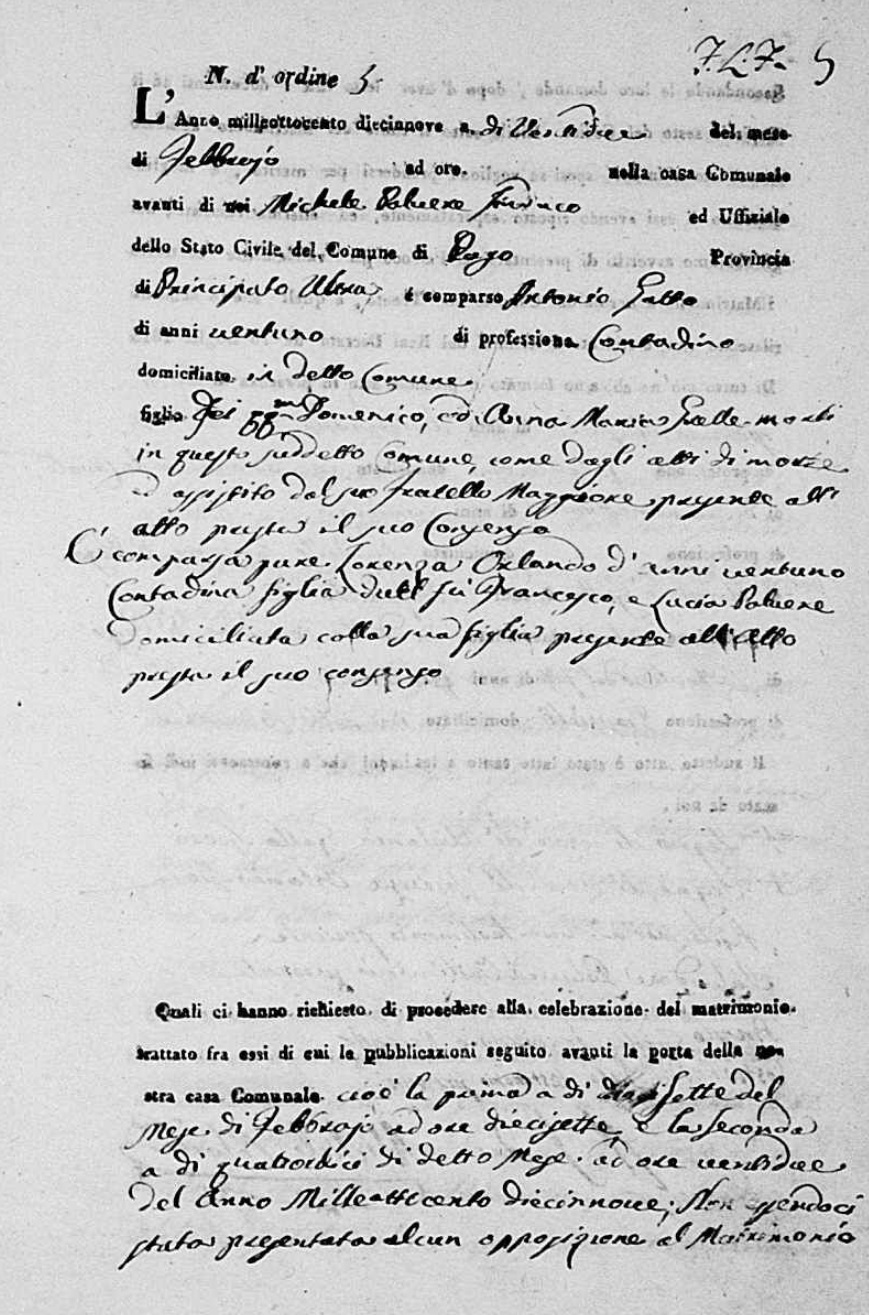 N. d' ordine 5
L' Anno millottocento diecinnove a di Ventidue del mese
di Febbrajo ad ore nella casa Comunale
avanti di noi Michele Paluere Sindaco ed Uffiziale
dello Stato Civile del Comune di Pago Provincia
di Principato Ultra è comparso Antonio Gallo
di anni ventuno di professione Contadino
domiciliato in detto Comune
figlio Domenico, ed Anna Maria morti
in questo suddetto Comune, come dagli atti di morte
ed assistito dal suo fratello Maggiore presente all'
atto presta il suo Consenso
È comparsa pure Lorenza Orlando d' anni ventuno
Contadina figlia dell fù Francesco, e Lucia Paluere
domiciliata colla sua figlia presente all' atto
presta il suo consenso
Quali ci hanno richiesto di procedere alla celebrazione del matrimonio
trattato fra essi di cui le pubblicazioni seguito avanti la porta della no-
stra casa Comunale cioè la prima a di sette del
Mese di Febbrajo ad ore diecisette e la seconda
a di quattordici di detto Mese ad ore ventidue
del Anno Milleotticento diecinnove; Non essendoci
stata presentata alcun opposizione al Matrimonio